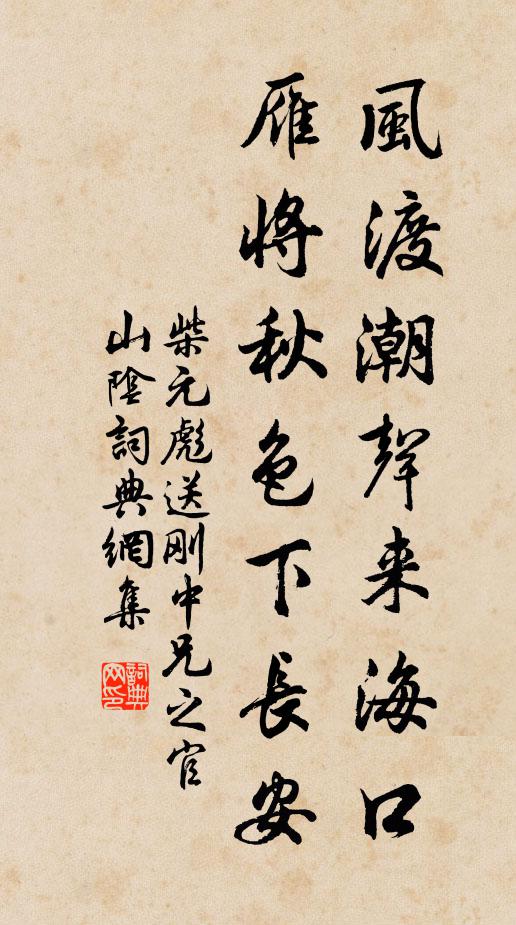 風渡潮聲来海口
雁将秋色下長安
柴元彪送刚中兄之官
山陰詞典網集
詞典网印